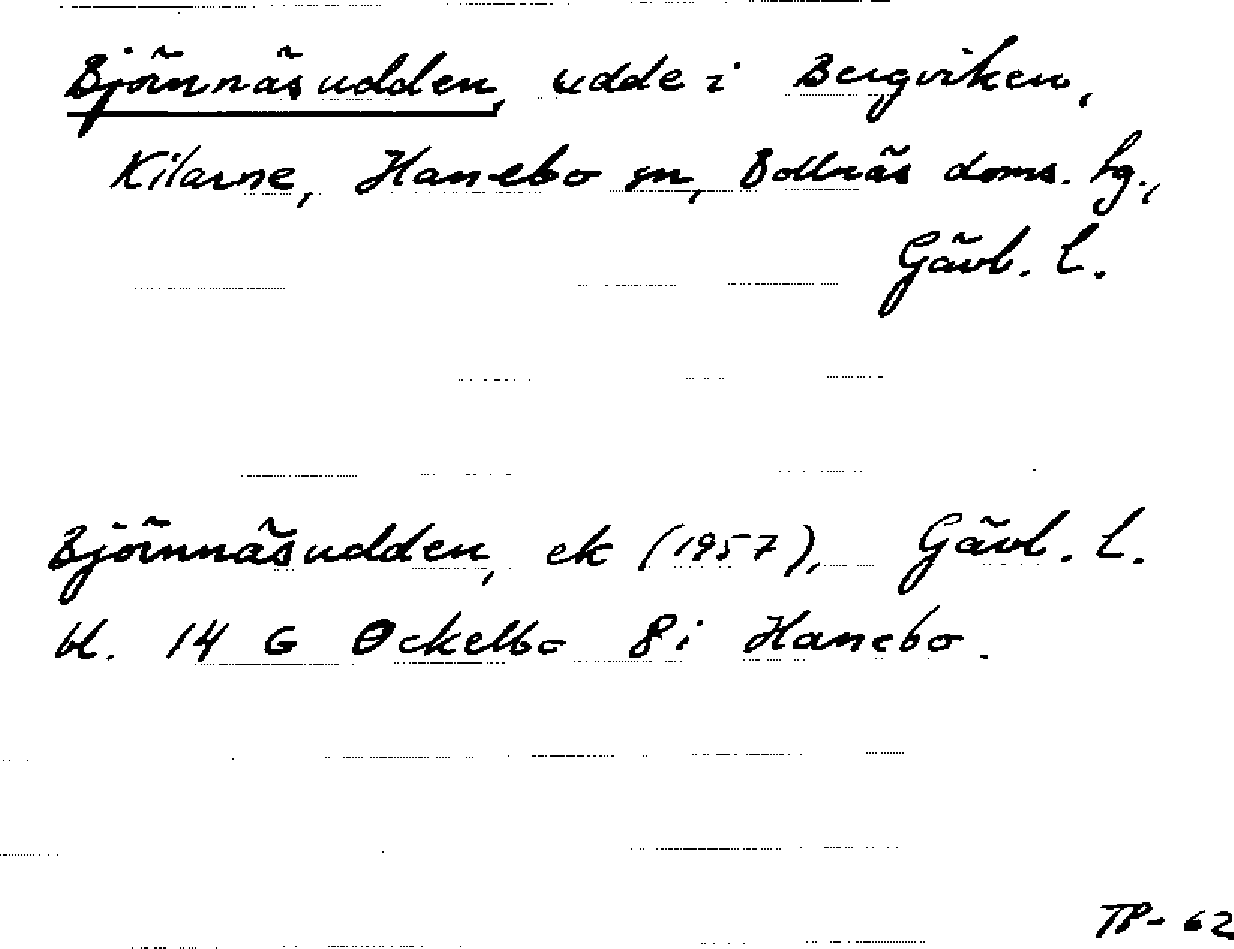 Björnnäsudden, udde i Bergviken,
Kilarne, Hanebo sn, Bollnäs doms. hg.,
Gävl. l.
Björnnäsudden, ek (1957), Gävl. l.
bl. 14 G Ockelbo 8i Hanebo.
TP-62